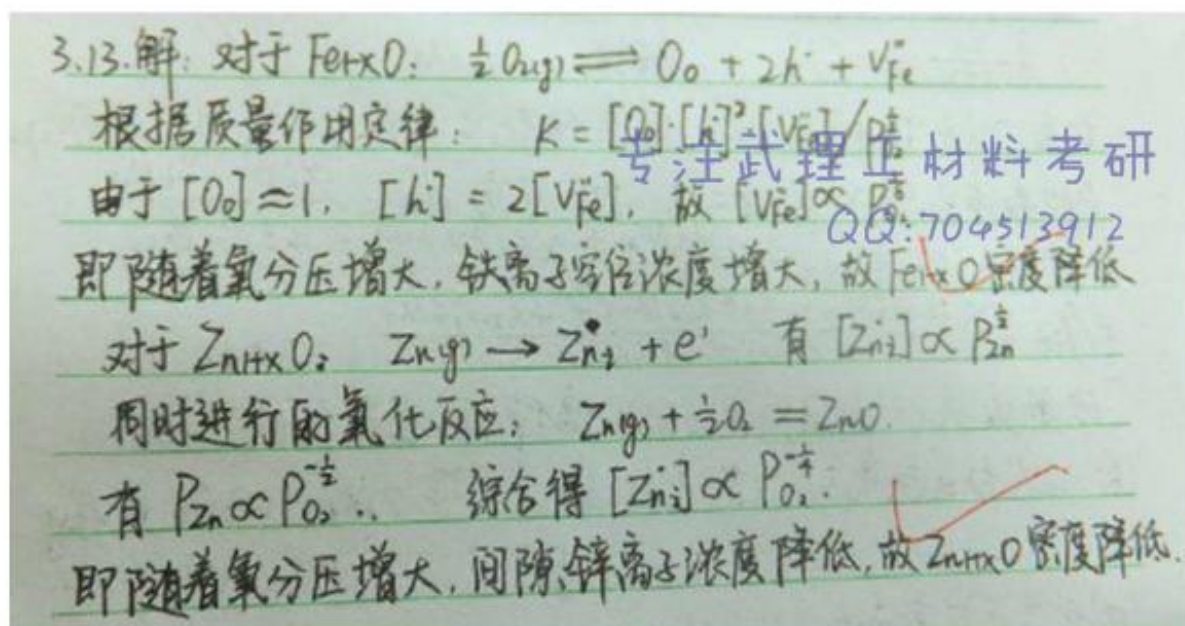 3.13.解: 对于Fe₁₋ₓO: ½O₂(g) ⇌ O₀ + 2h˙ + V″Fe
根据质量作用定律: K = [O₀]·[h˙]²[V″Fe]/P
专注武理工材料考研
由于[O₀]≈1, [h˙] = 2[V″Fe], 故[V″Fe]∝P
QQ:704513912
即随着氧分压增大,铁离子空位浓度增大,故Fe₁₋ₓO密度降低
对于Zn₁₊ₓO: Zn(g) → Zn˙ᵢ + e′ 有[Zn˙ᵢ]∝P_Zn^½
同时进行的氧化反应: Zn(g) + ½O₂ = ZnO.
有P_Zn∝P_O₂^-½ ∴ 综合得[Zn˙ᵢ]∝P_O₂^-¼.
即随着氧分压增大,间隙锌离子浓度降低,故Zn₁₊ₓO密度降低.